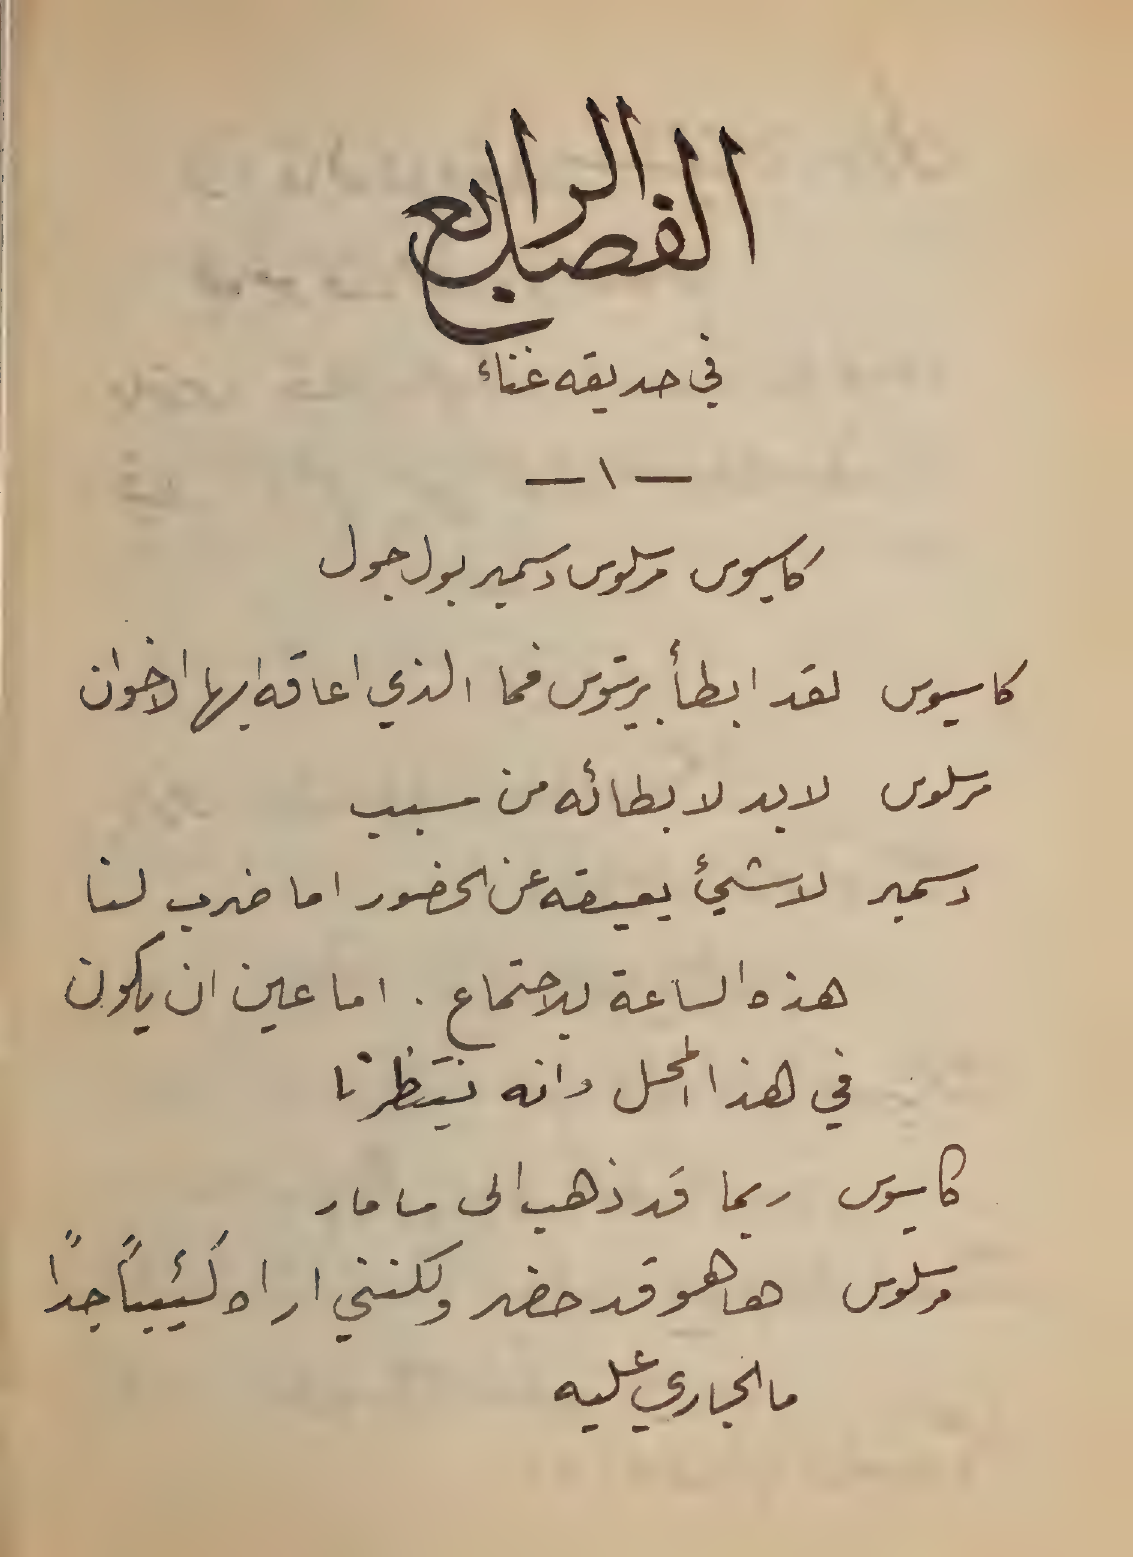 الفصل الرابع
في حديقه غناء
— ١ —
كاسيوس مرسلوس دسمير بول جول
كاسيوس لقد ابطأ بريتوس فما الذي اعاقه ايها الاخوان
مرسلوس لا بد لا بطائه من سبب
دسمير لا شيئ يعيقه عن الحضور اما ضرب لنا
هذه الساعة للاجتماع . اما عين ان يكون
في هذا المحل وانه ينتظرنا
كاسيوس ربما قد ذهب الى
مرسلوس ها هو قد حضر ولكنني اراه كئيباً جداً
ما الجاري عليه